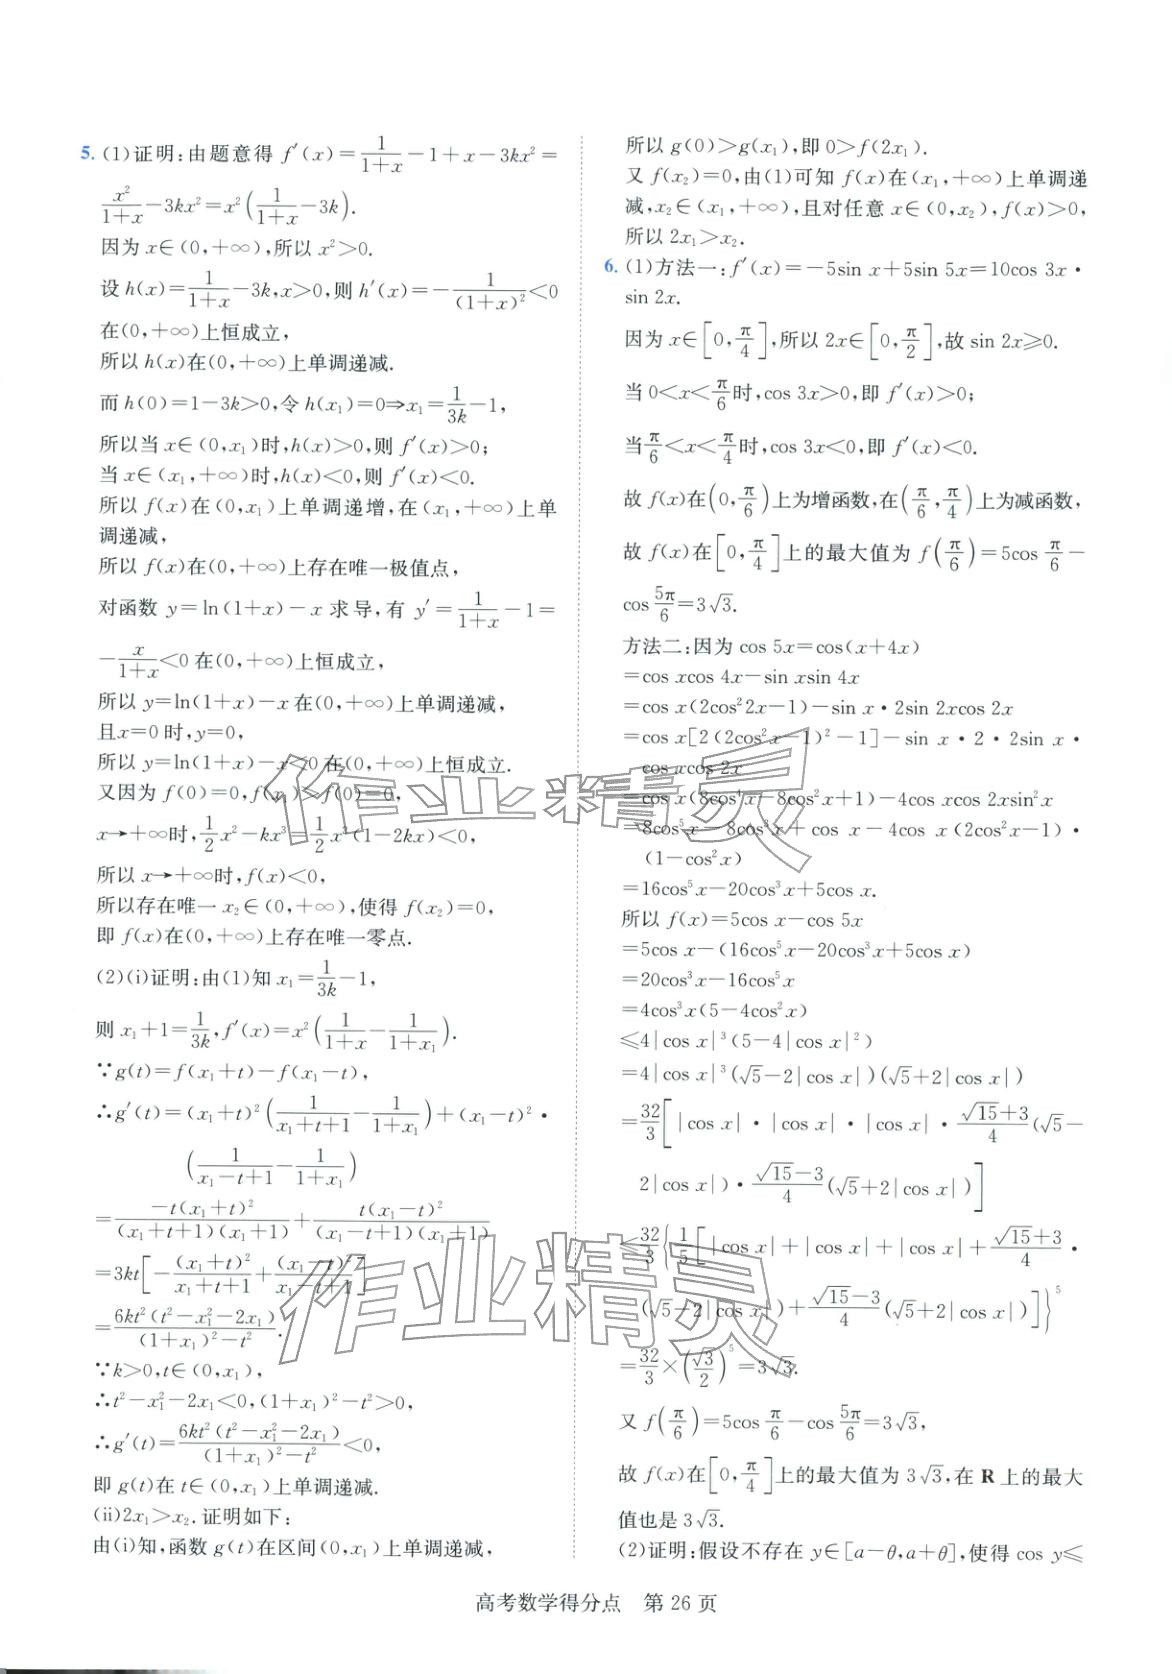 5. (1)证明:由题意得 f′(x)=1/(1+x)-1+x-3kx²=
x²/(1+x)-3kx²=x²(1/(1+x)-3k).
因为 x∈(0,+∞),所以 x²>0.
设 h(x)=1/(1+x)-3k,x>0,则 h′(x)=-1/(1+x)²<0
在(0,+∞)上恒成立,
所以 h(x)在(0,+∞)上单调递减.
而 h(0)=1-3k>0,令 h(x₁)=0⇒x₁=1/(3k)-1,
所以当 x∈(0,x₁)时,h(x)>0,则 f′(x)>0;
当 x∈(x₁,+∞)时,h(x)<0,则 f′(x)<0.
所以 f(x)在(0,x₁)上单调递增,在(x₁,+∞)上单
调递减,
所以 f(x)在(0,+∞)上存在唯一极值点,
对函数 y=ln(1+x)-x 求导,有 y′=1/(1+x)-1=
-x/(1+x)<0 在(0,+∞)上恒成立,
所以 y=ln(1+x)-x 在(0,+∞)上单调递减,
且x=0 时,y=0,
所以 y=ln(1+x)-x<0 在(0,+∞)上恒成立.
又因为 f(0)=0,f(x₁)>f(0)=0,
x→+∞时,1/2x²-kx³=1/2x²(1-2kx)<0,
所以 x→+∞时,f(x)<0,
所以存在唯一 x₂∈(0,+∞),使得 f(x₂)=0,
即 f(x)在(0,+∞)上存在唯一零点.
(2)(i)证明:由(1)知 x₁=1/(3k)-1,
则 x₁+1=1/(3k),f′(x)=x²(1/(1+x)-1/(1+x₁)).
∵g(t)=f(x₁+t)-f(x₁-t),
∴g′(t)=(x₁+t)²(1/(x₁+t+1)-1/(1+x₁))+(x₁-t)²·
(1/(x₁-t+1)-1/(1+x₁))
=-t(x₁+t)²/((x₁+t+1)(x₁+1))+t(x₁-t)²/((x₁-t+1)(x₁+1))
=3kt[-(x₁+t)²/(x₁+t+1)+(x₁-t)²/(x₁-t+1)]
=6kt²(t²-x₁²-2x₁)/((1+x₁)²-t²).
∵k>0,t∈(0,x₁),
∴t²-x₁²-2x₁<0,(1+x₁)²-t²>0,
∴g′(t)=6kt²(t²-x₁²-2x₁)/((1+x₁)²-t²)<0,
即 g(t)在 t∈(0,x₁)上单调递减.
(ii)2x₁>x₂.证明如下:
由(i)知,函数 g(t)在区间(0,x₁)上单调递减,
所以 g(0)>g(x₁),即 0>f(2x₁).
又 f(x₂)=0,由(1)可知 f(x)在(x₁,+∞)上单调递
减,x₂∈(x₁,+∞),且对任意 x∈(0,x₂),f(x)>0,
所以 2x₁>x₂.
6. (1)方法一:f′(x)=-5sin x+5sin 5x=10cos 3x·
sin 2x.
因为 x∈[0,π/4],所以 2x∈[0,π/2],故 sin 2x≥0.
当 0<x<π/6时,cos 3x>0,即 f′(x)>0;
当π/6<x<π/4时,cos 3x<0,即 f′(x)<0.
故 f(x)在(0,π/6)上为增函数,在(π/6,π/4)上为减函数,
故 f(x)在[0,π/4]上的最大值为 f(π/6)=5cos π/6-
cos 5π/6=3√3.
方法二:因为 cos 5x=cos(x+4x)
=cos xcos 4x-sin xsin 4x
=cos x(2cos²2x-1)-sin x·2sin 2xcos 2x
=cos x[2(2cos²x-1)²-1]-sin x·2·2sin x·
cos xcos 2x
=cos x(8cos⁴x-8cos²x+1)-4cos xcos 2xsin²x
=8cos⁵x-8cos³x+cos x-4cos x(2cos²x-1)·
(1-cos²x)
=16cos⁵x-20cos³x+5cos x.
所以 f(x)=5cos x-cos 5x
=5cos x-(16cos⁵x-20cos³x+5cos x)
=20cos³x-16cos⁵x
=4cos³x(5-4cos²x)
≤4|cos x|³(5-4|cos x|²)
=4|cos x|³(√5-2|cos x|)(√5+2|cos x|)
=32/3[|cos x|·|cos x|·|cos x|·(√15+3)/4(√5-
2|cos x|)·(√15-3)/4(√5+2|cos x|)]
≤32/3{1/5[|cos x|+|cos x|+|cos x|+(√15+3)/4·
(√5-2|cos x|)+(√15-3)/4(√5+2|cos x|)]}⁵
=32/3×(√3/2)⁵=3√3.
又 f(π/6)=5cos π/6-cos 5π/6=3√3,
故 f(x)在[0,π/4]上的最大值为 3√3,在 R 上的最大
值也是 3√3.
(2)证明:假设不存在 y∈[a-θ,a+θ],使得 cos y≤
高考数学得分点 第 26 页
作业精灵
作业精灵